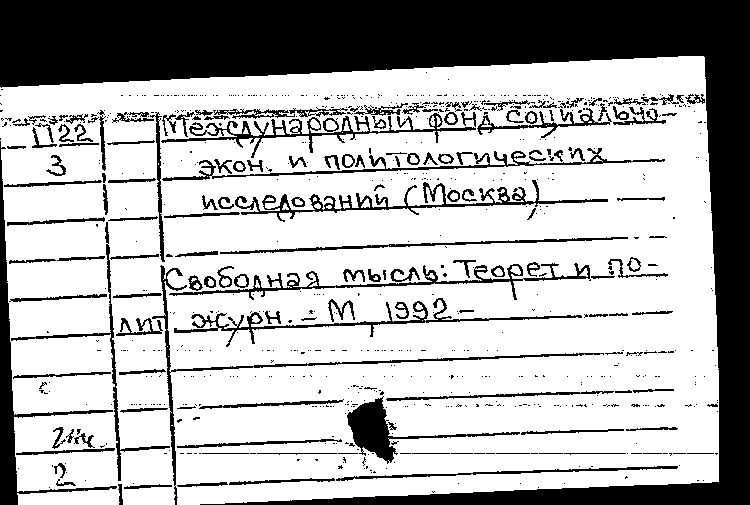 П22 Международный фонд социально-
3 экон. и политологических
исследований (Москва)
Свободная мысль: Теорет и по-
лит журн. – М, 1992 –
2